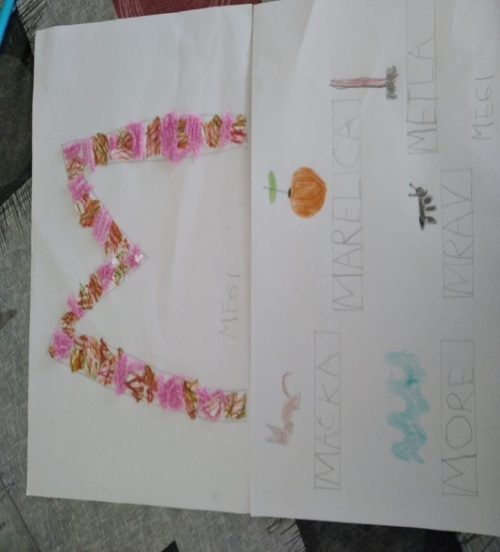 M
MEGI
MACKA
MARELICA
METLA
MORE
MRAV
MEGI